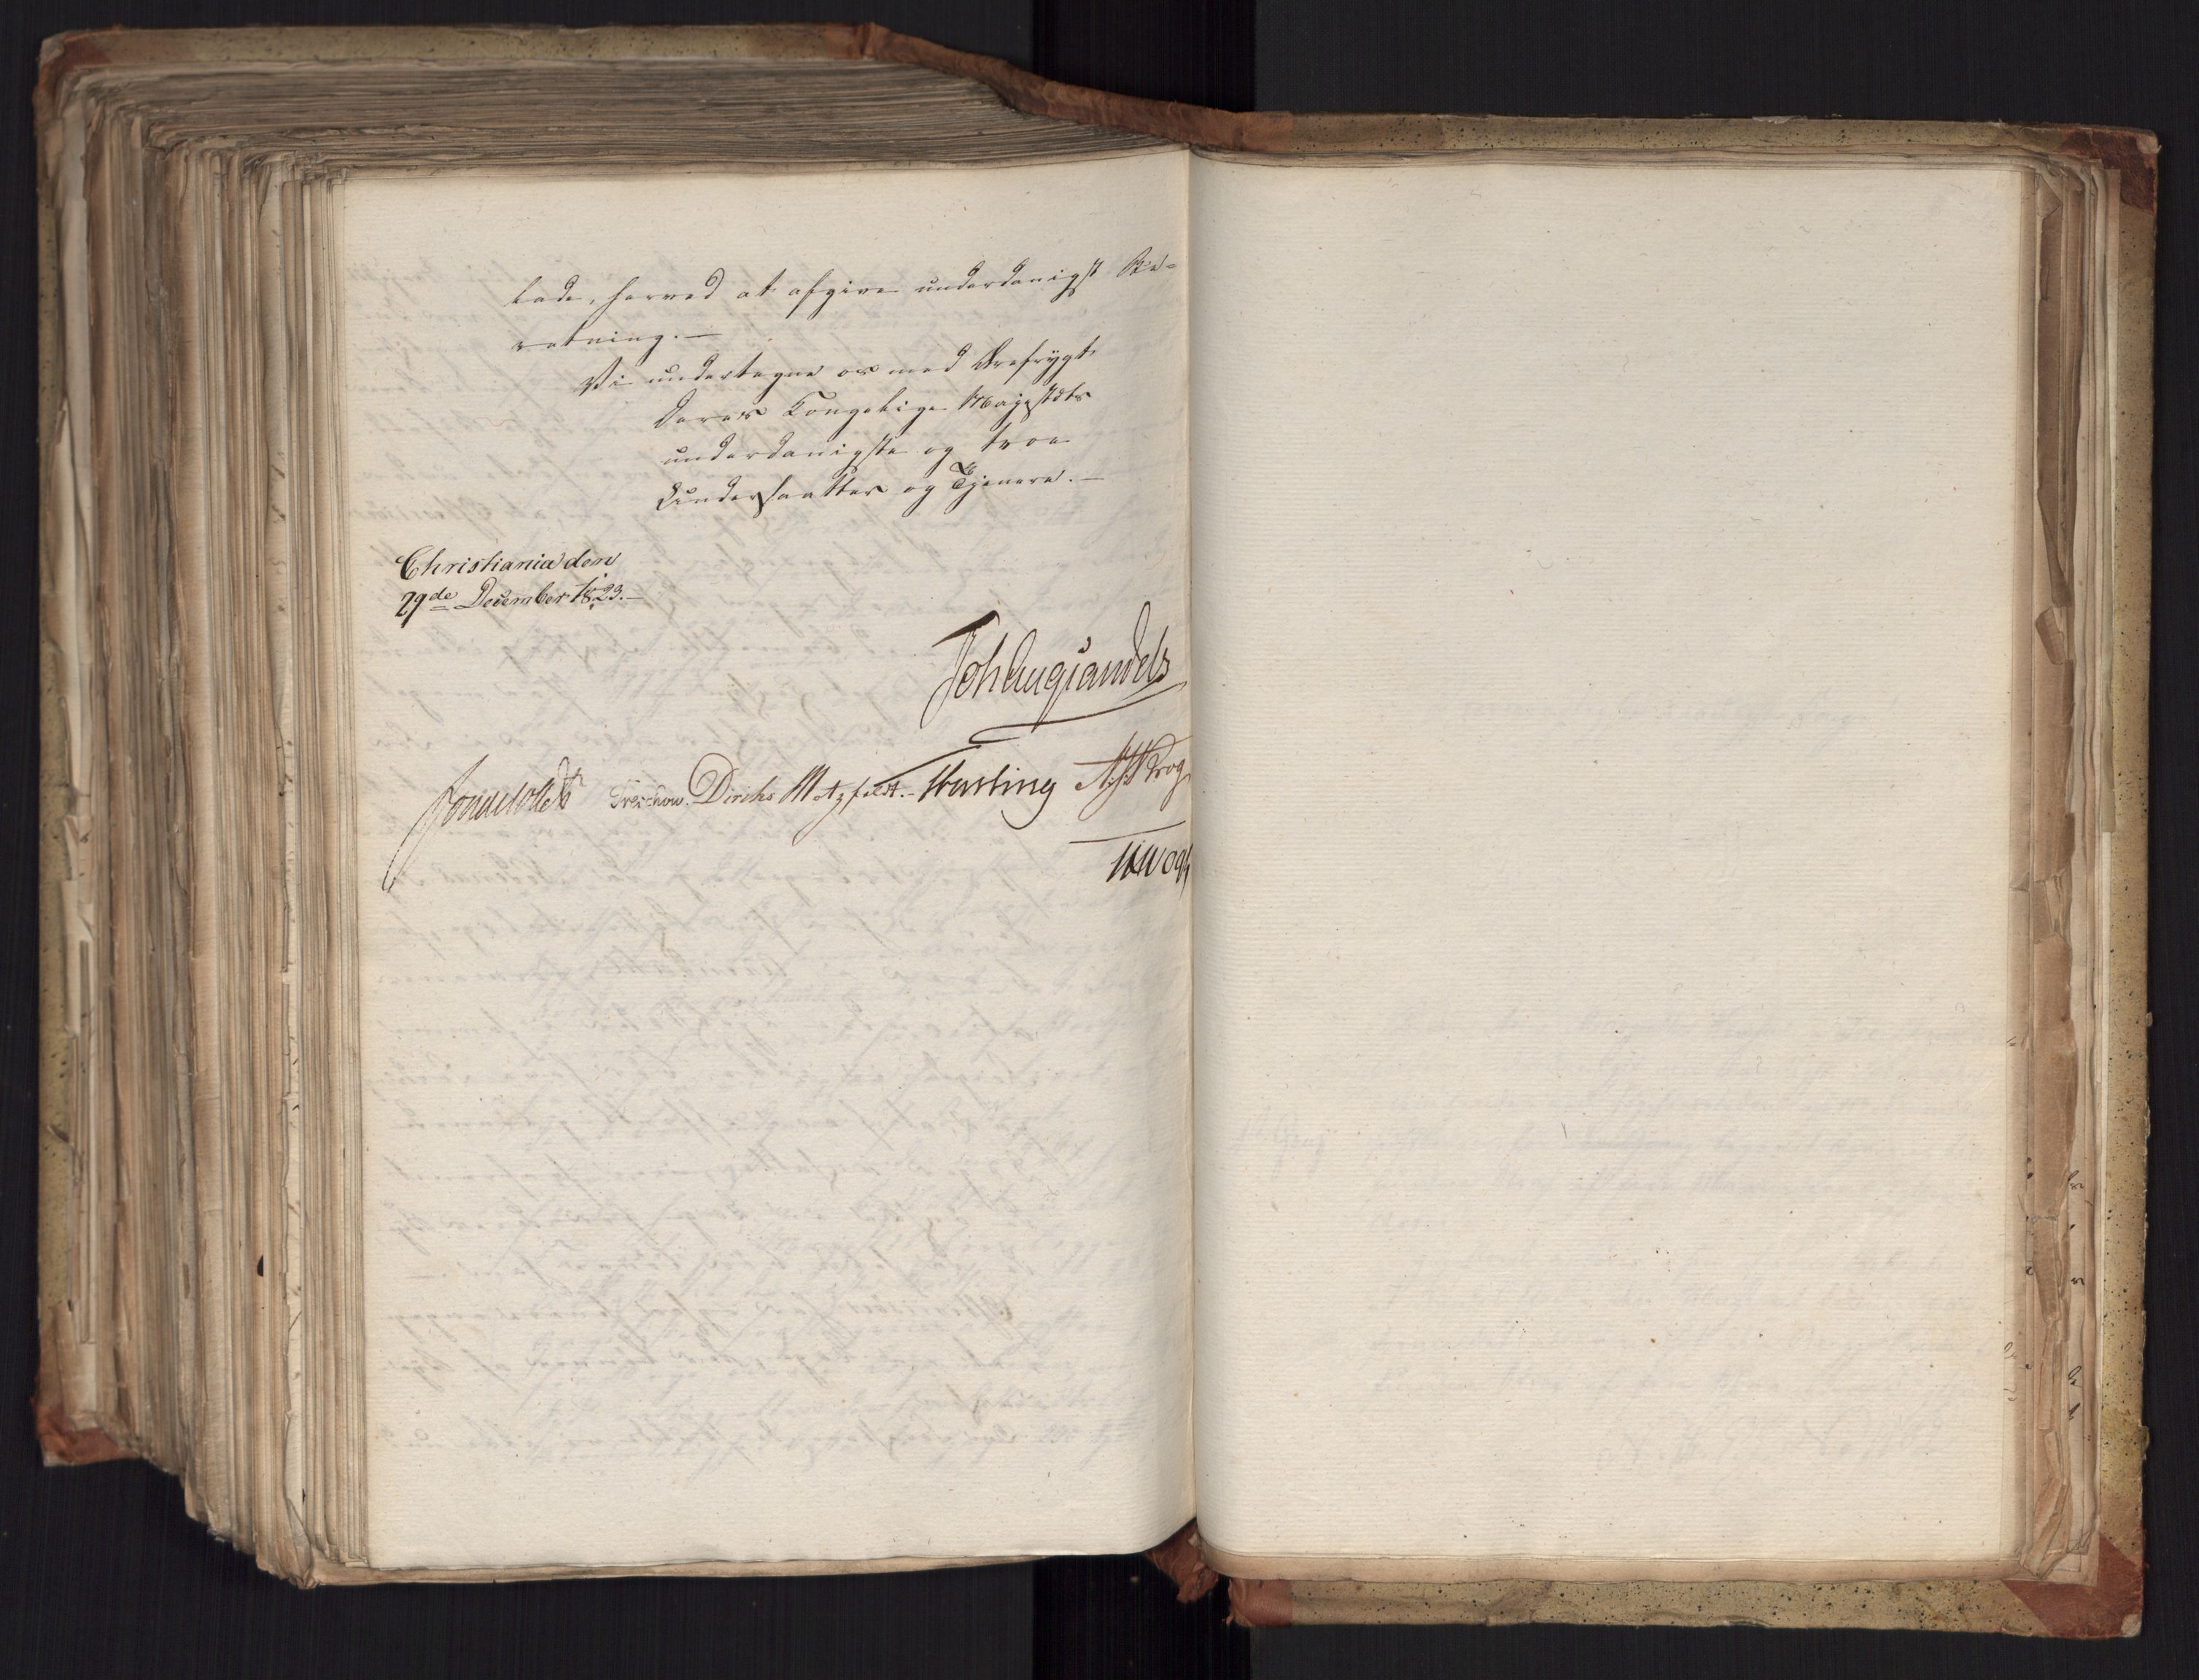 lade, herved at afgive underdanigst Be-
retning.—
Vi undertegne os med Ærefrygt
Deres Kongelige Majestæts
underdanigste og troe
Undersaatter og Tjenere.—
Christiania den
29de December 1823.—
Joh Aug Sandels
Jonas Collett Treschow. Diriks Motzfeldt. Fasting Krog
Vogt